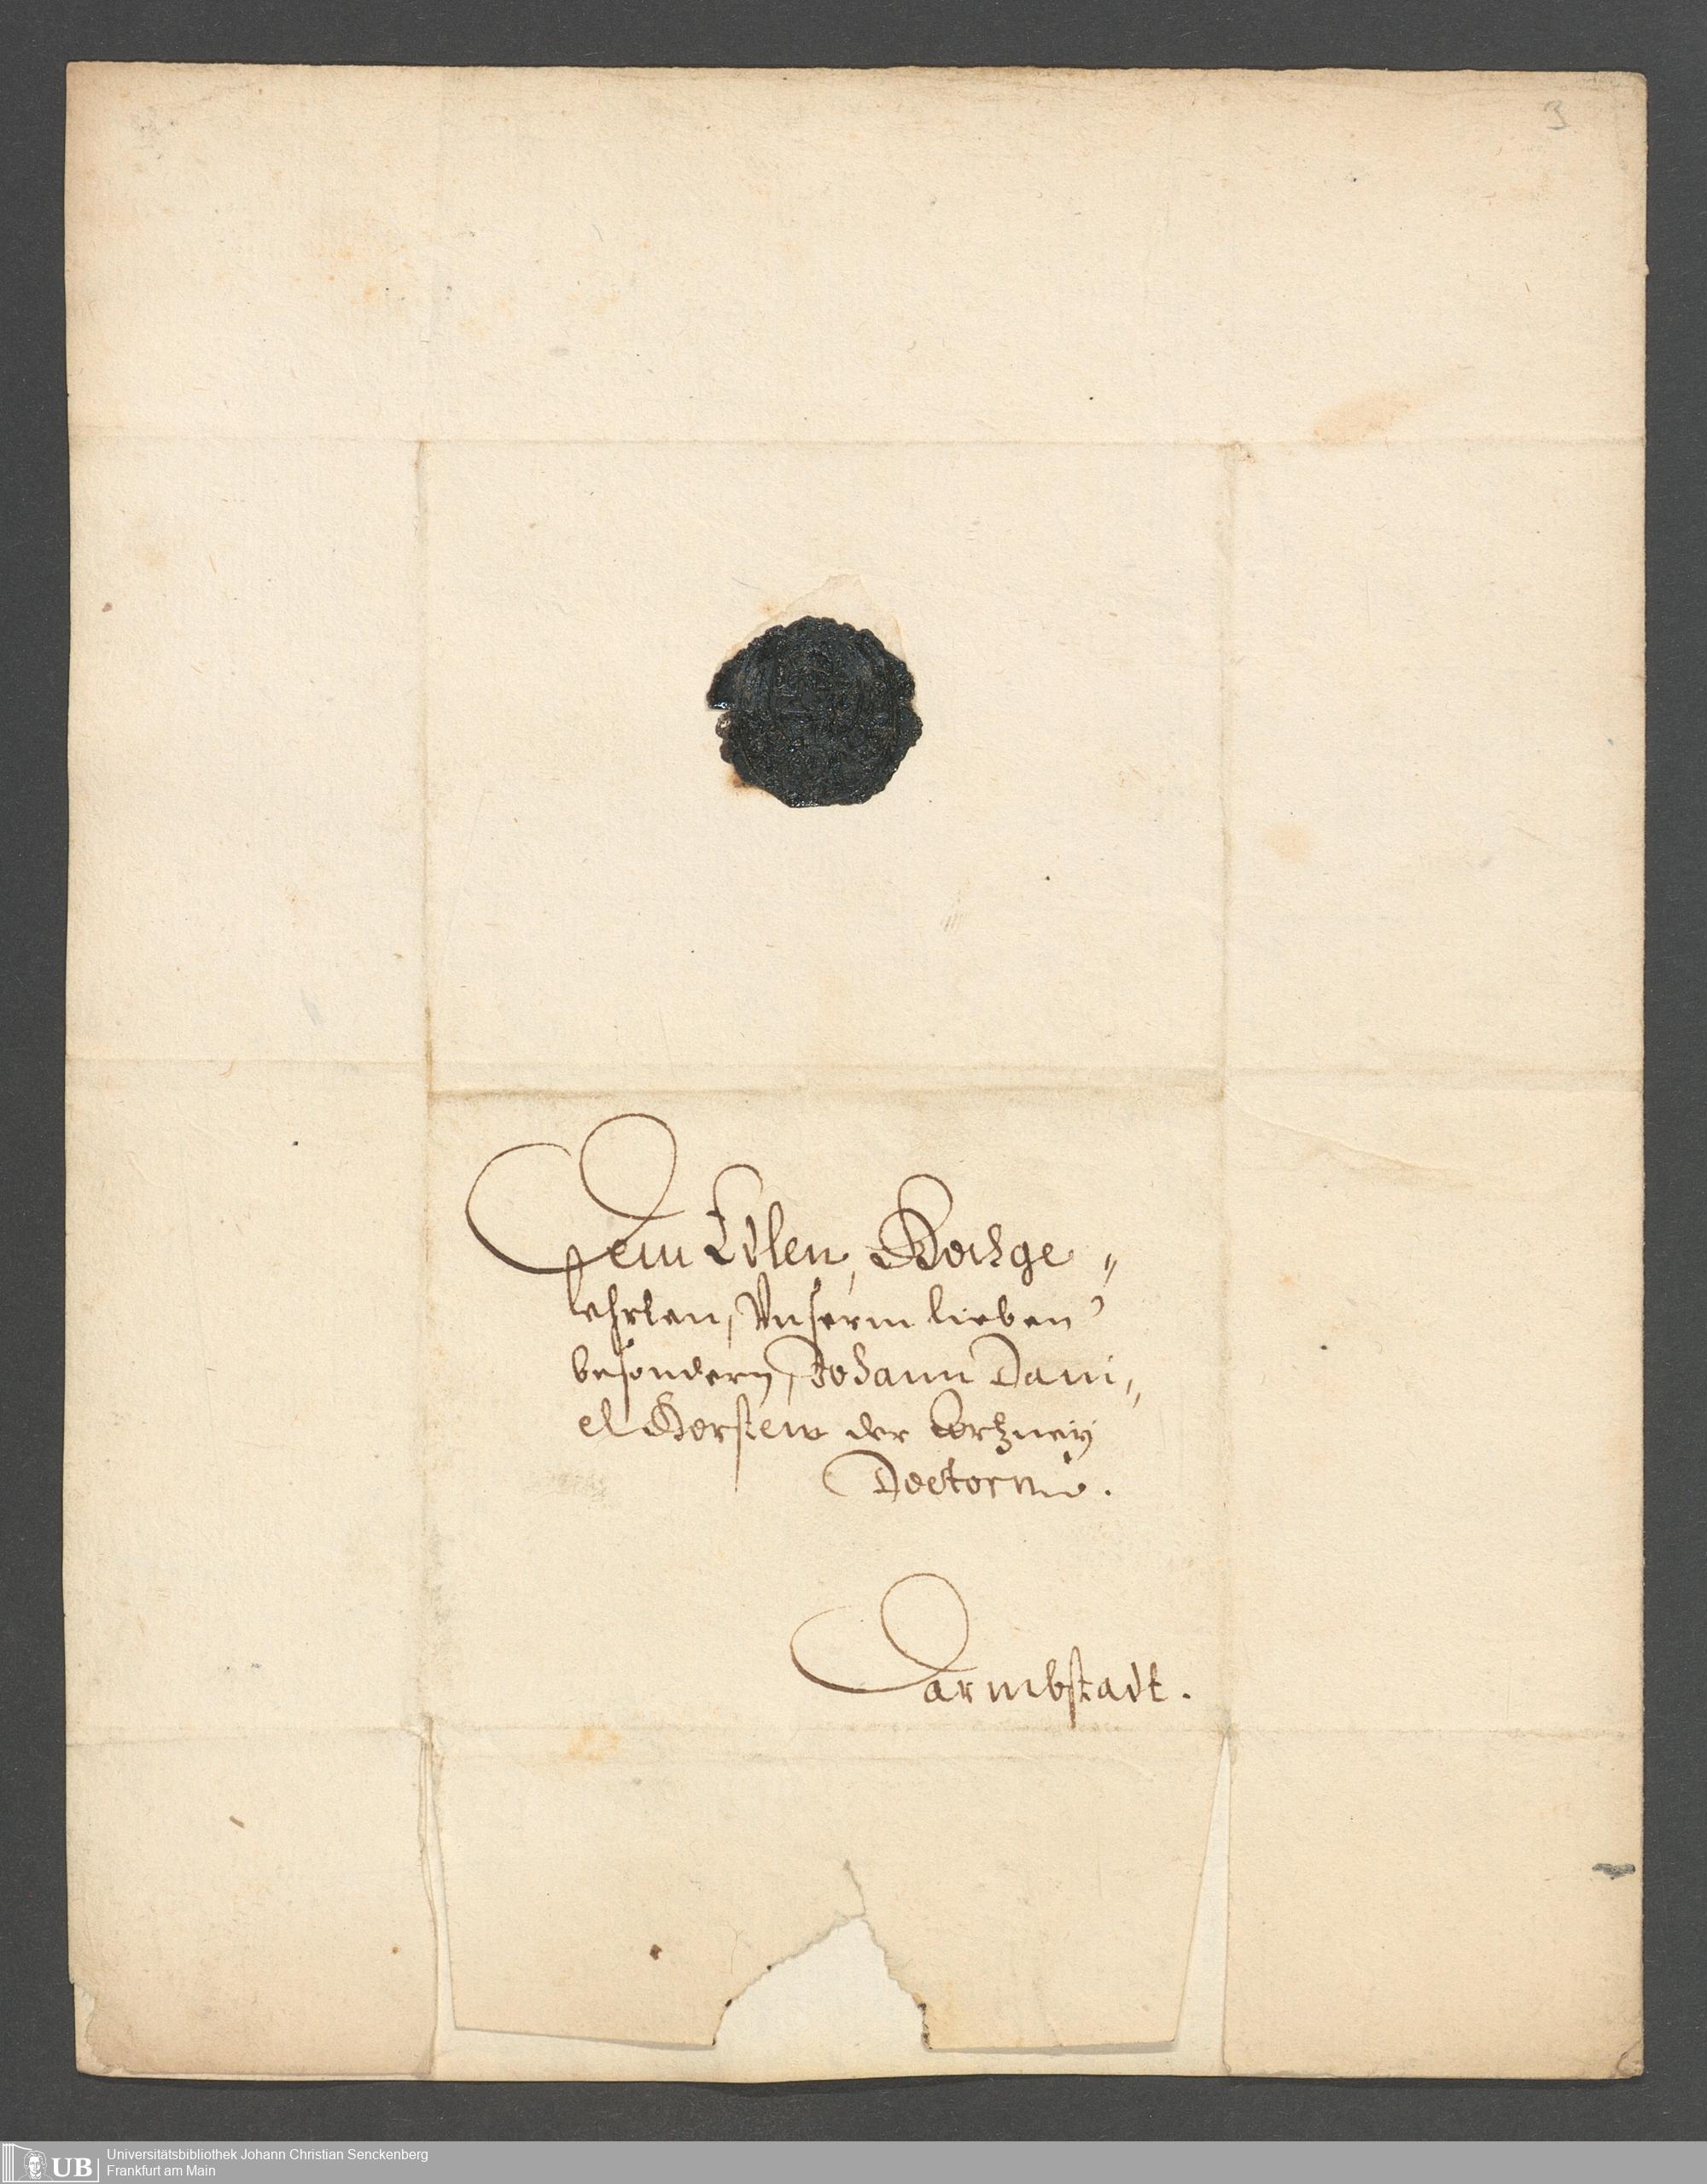 3
Dem Edlen, Hochge„
lehrten, Unserm lieben
besondern, Johann Dani„
el Horsten der Artzney
Doctorn.
Darmbstadt.
UB Universitätsbibliothek Johann Christian Senckenberg
Frankfurt am Main